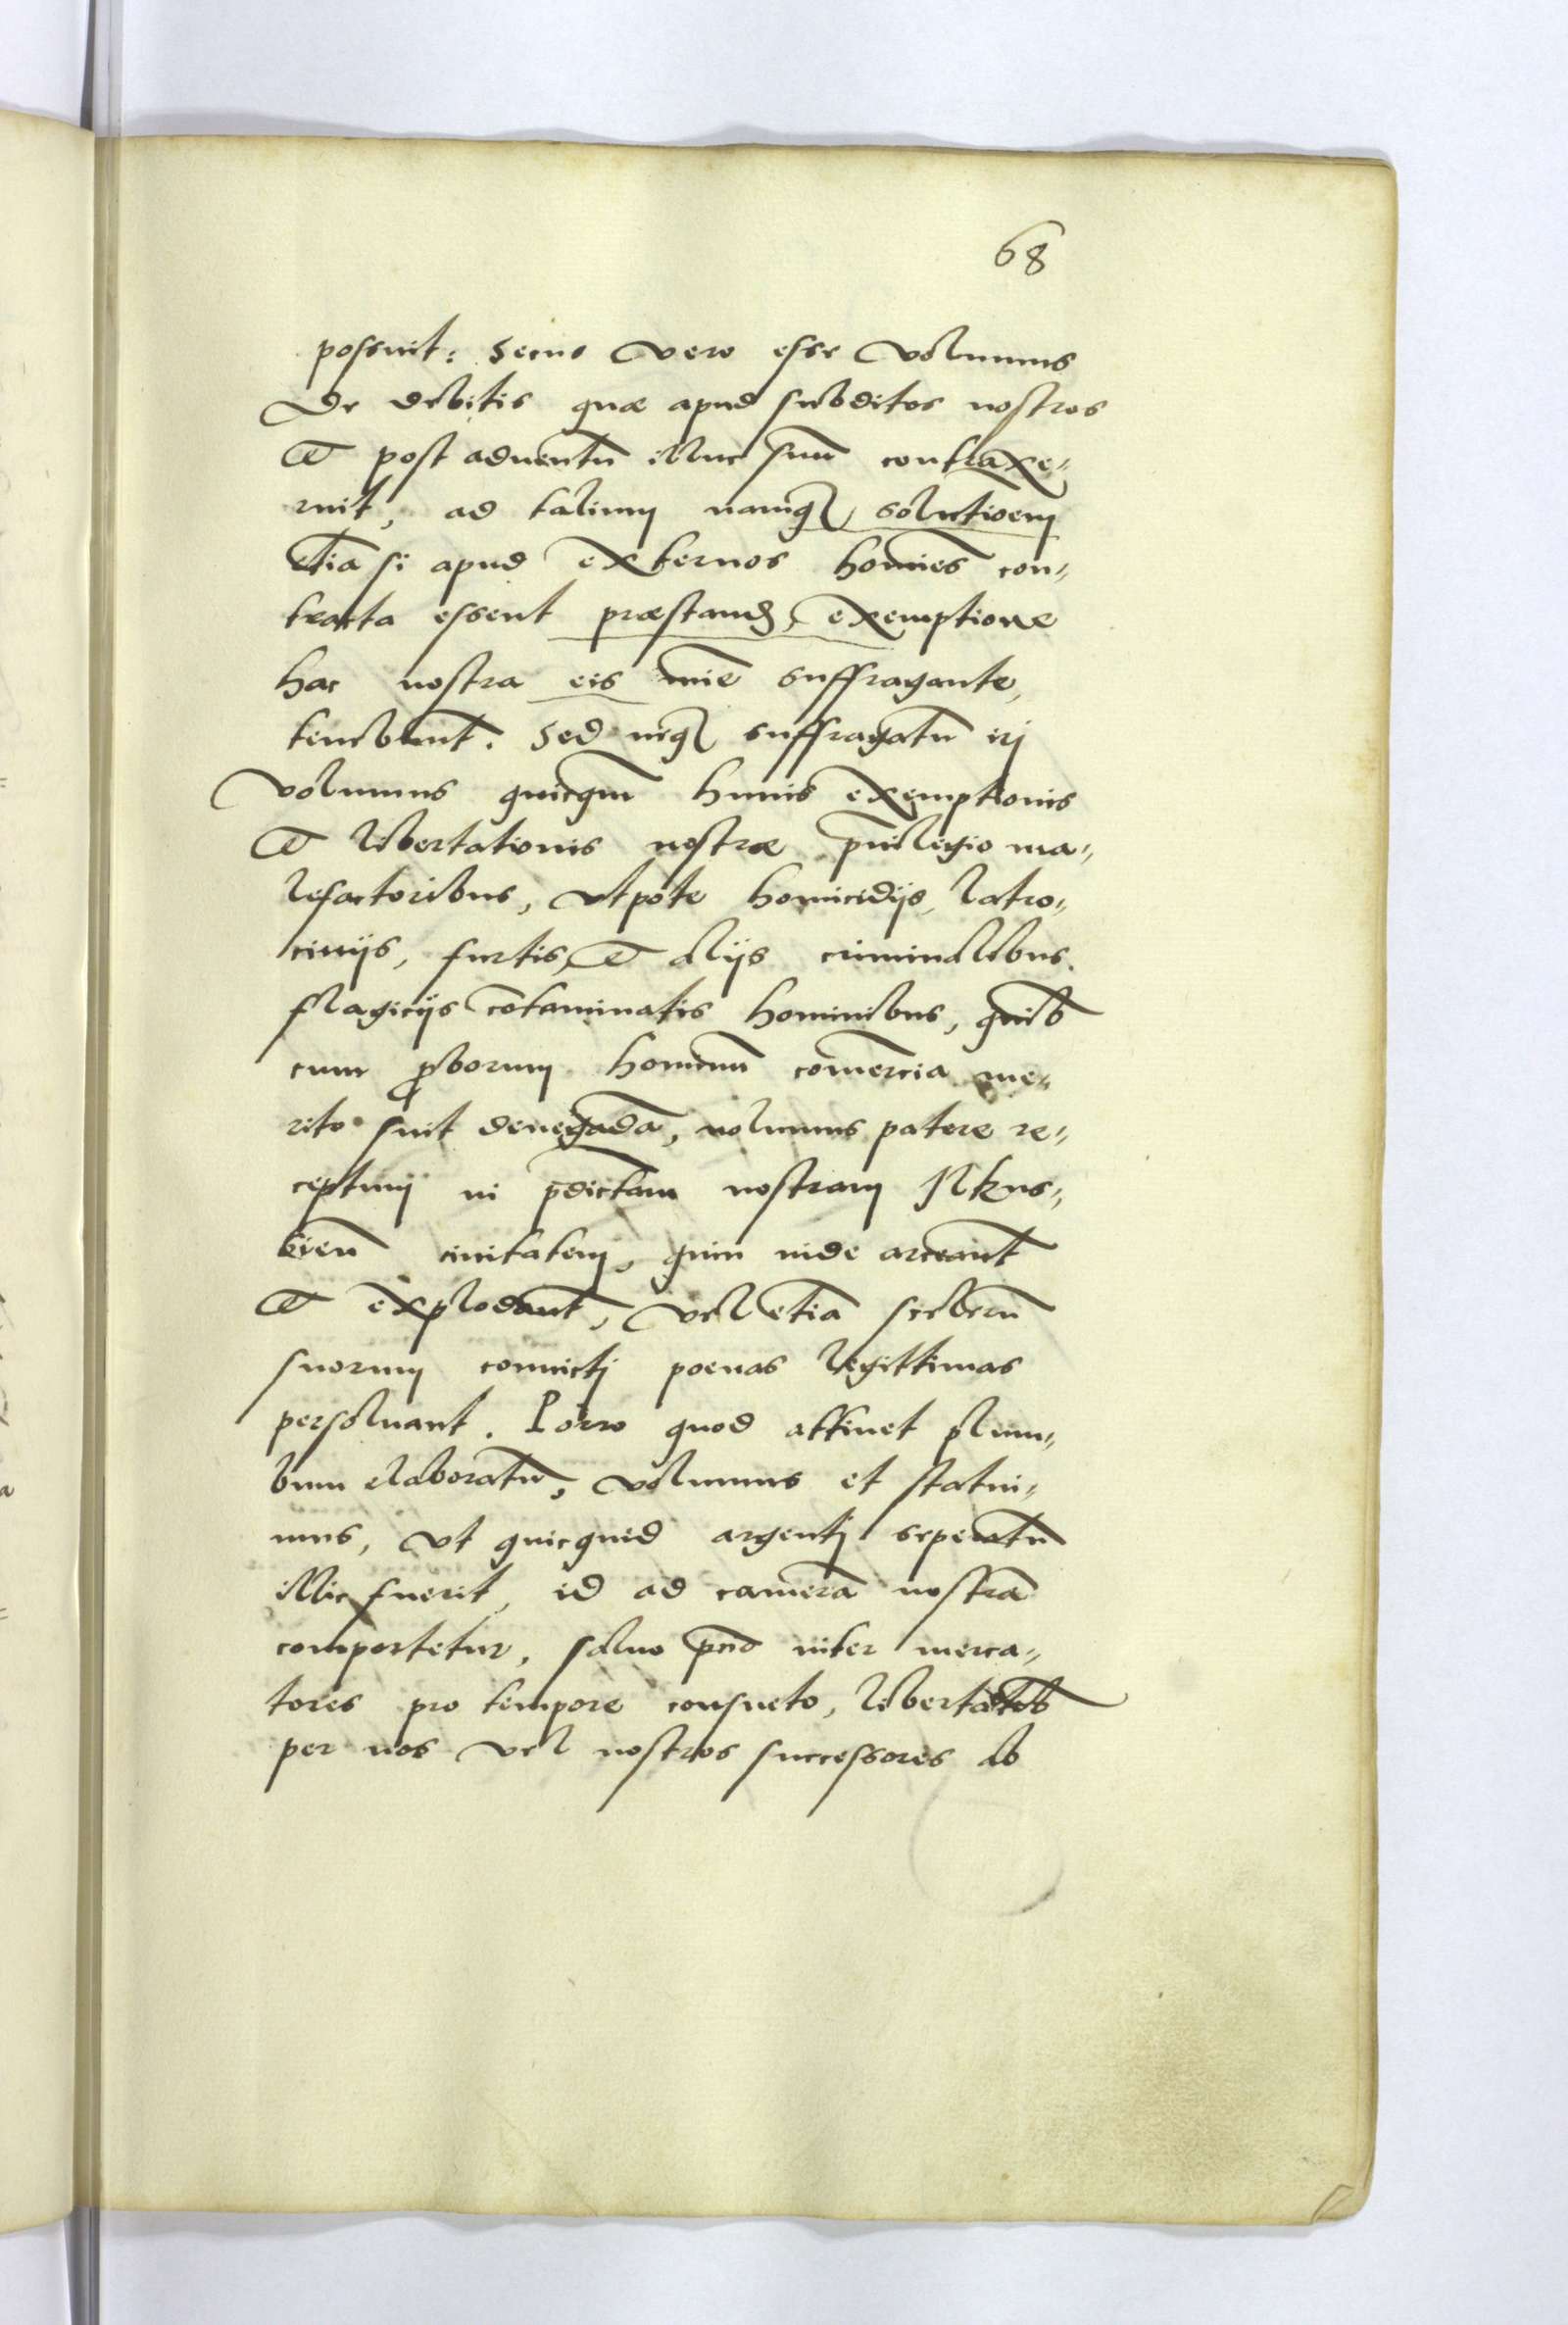 68
possint: Secus vero esse volumus
De debitis quæ apud subditos nostros
Et post aduentū illuc suū contraxe,,
rint, ad talium namq solutioem
etiā si apud externos homies con,,
tracta essent præstand, exemptione
hac nostra eis mīe suffragante,
tenebunt. Sed neq suffragatū irj
volumus quicqm huius exemptionis
Et libertationis nostræ pūilegio ma,,
lefactoribus, vtpote homicidijs, latro,,
cinijs, furtis, Et alijs criminalibus
flagicijs cōtaminatis hominibus, quib
cum proborum hominū comercia me,,
rito sint denegāda, nolumus patere re,,
ceptum in pdictam nostram Ilkus,,
cien ciuitatem, quin inde arceant
Et explodant, vel etiā scelerū
suorum conuictj poenas legittimas
persoluant. Porro quod attinet plum,,
bum elaboratū, volumus et statui,,
mus, vt quicquid argentj seperatū
illic fuerit, id ad camerā nostrā
comportetur, saluo pcio inter merca,,
tores pro tempore consueto, libertatib
per nos vel nostros successores ab